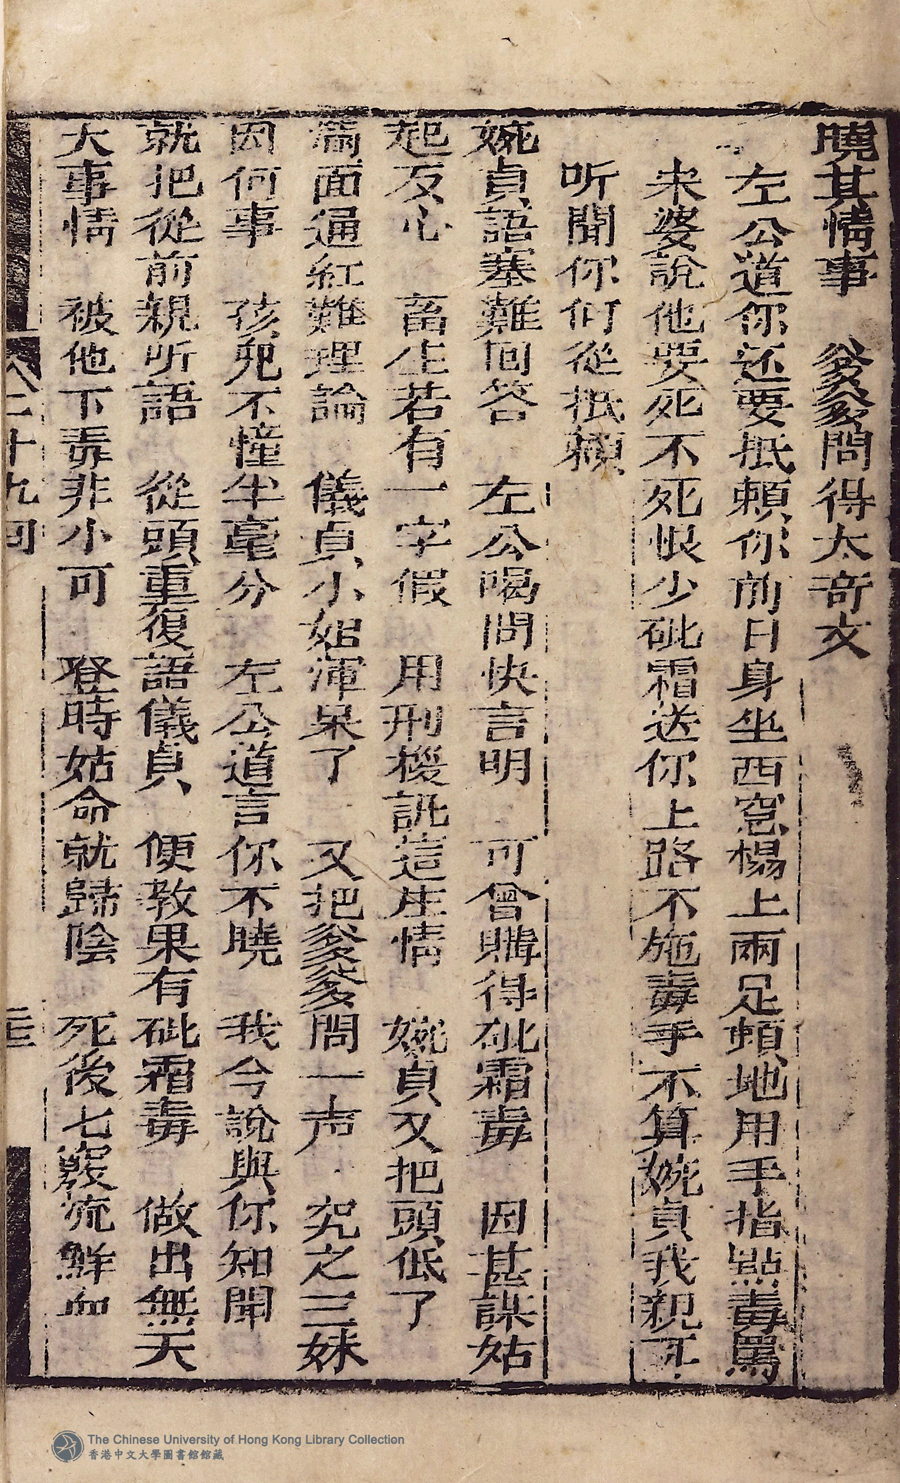 曉其情事　爹爹問得太奇文
左公道你还要抵賴你前日身坐西窓榻上兩足頓地用手指點毒罵
未婆說他要死不死恨少砒霜送你上路不施毒手不算婉貞我親耳
听聞你何從抵賴
婉貞語塞難回答　左公喝問快言明　可曾購得砒霜毒　因甚謀姑
起反心　畜生若有一字假　用刑椶訊這庄情　婉貞又把頭低了
滿面通紅難理論　儀貞小姐渾呆了　又把爹爹問一声　究之三妹
因何事　孩兒不憧半毫分　左公道言你不曉　我今說與你知聞
就把從前親听語　從頭重復語儀貞　便教果有砒霜毒　做出無天
大事情　被他下弄非小可　登時姑命就歸陰　死後七竅流鮮血
二十九回
The Chinese University of Hong Kong Library Collection
香港中文大學圖書館館藏